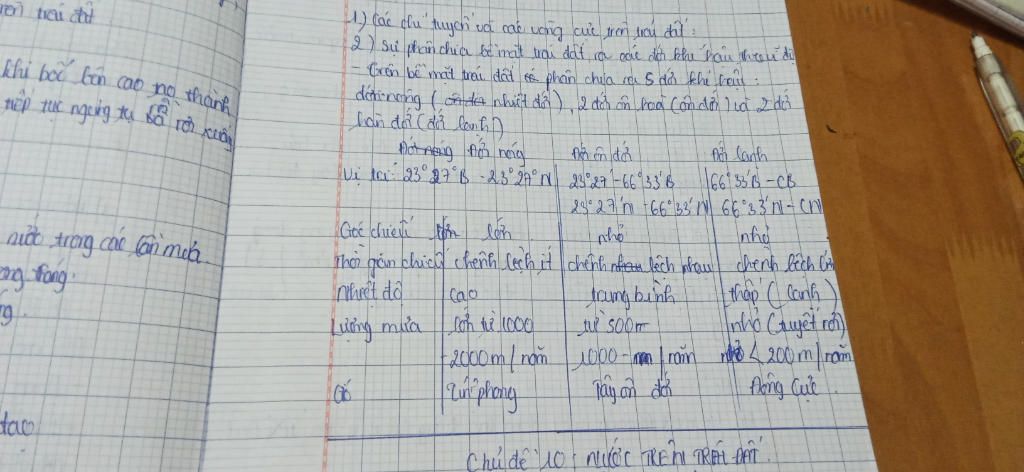 trên trái đất
khi bốc lên cao nó thành
tiếp tục ngưng tụ rồi rơi xuống
nước trong các cơn mưa
tạo
1) Các chí tuyến và các vòng cực trên trái đất:
2) sự phân chia bề mặt trái đất ra các đới khí hậu theo vĩ độ
- trên bề mặt trái đất phân chia ra 5 đới khí hậu:
đới nóng (nhiệt đới), 2 đới ôn hoà (ôn đới) và 2 đới
hàn đới (đới lạnh)
Đới nóng Đới ôn đới Đới lạnh
Vị trí: 23°27°B - 23°27°N 23°27'-66°33'B 66°33'B-CB
23°27'N-66°33'N 66°33'N-CN
Góc chiếu lớn nhỏ nhỏ
Thời gian chiếu chênh lệch ít chênh lệch nhau chênh lệch lớn
Nhiệt độ cao trung bình thấp (lạnh)
Lượng mưa lớn từ 1000 từ 500m nhỏ (tuyết rơi)
-2000m/năm 1000-m/năm <200m/năm
Gió Tín phong Tây ôn đới Đông Cực
Chủ đề 10: NƯỚC TRÊN TRÁI ĐẤT